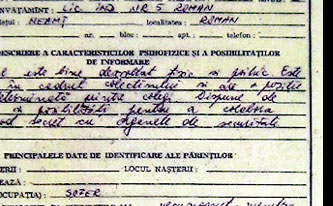 ÎNVĂȚĂMÎNT) LIC IND NR 5 ROMAN
județul NEAMȚ localitatea ROMAN
nr. bloc : apt. : telefon :
DESCRIERE A CARACTERISTICILOR PSIHOFIZICE ȘI A POSIBILITĂȚILOR
DE INFORMARE
este bine dezvoltat fizic și psihic. Este
în cadrul colectivului și are o poziție
printre colegi Dispune de
posibilități pentru a colabora
secret cu organele de securitate
PRINCIPALELE DATE DE IDENTIFICARE ALE PĂRINȚILOR
LOCUL NAȘTERII :
OCUPAȚIA) : ȘOFER